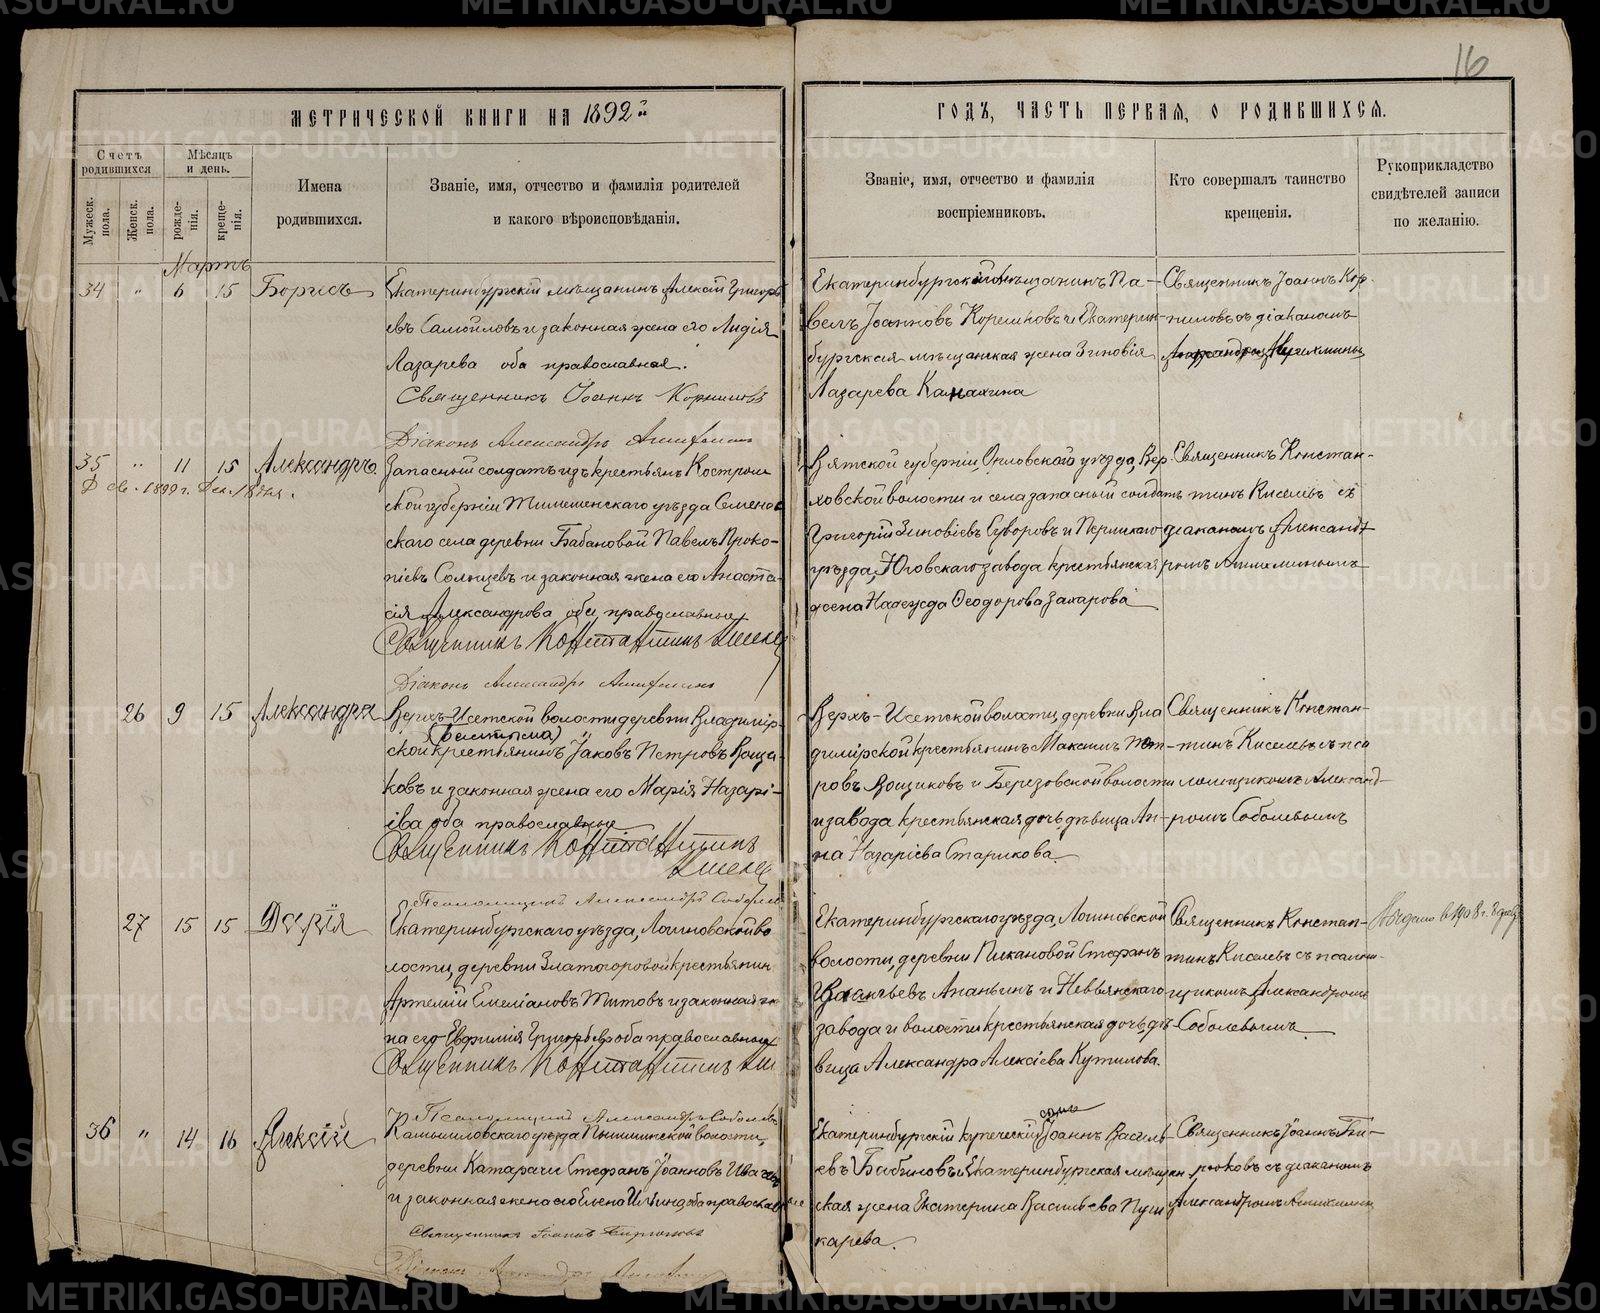 16
МЕТРИЧЕСКОЙ КНИГИ НА 1892й
ГОДЪ, ЧАСТЬ ПЕРВАЯ, О РОДИВШИХСЯ.
Счетъ родившихся
Мужеск. пола.
Женск. пола.
Мѣсяцъ и день.
рожденія.
крещенія.
Имена
родившихся.
Званіе, имя, отчество и фамилія родителей
и какого вѣроисповѣданія.
Званіе, имя, отчество и фамилія
воспріемниковъ.
Кто совершалъ таинство
крещенія.
Рукоприкладство
свидѣтелей записи
по желанію.
Мартъ
34 " 6 15 Борисъ
Екатеринбургскій мѣщанинъ Алексій Григорь
евъ Самойловъ и законная жена его Лидія
Лазарева оба православная.
Священникъ Іоаннъ Корниловъ
Діаконъ Александръ
Екатеринбургскій мѣщанинъ Па-
велъ Іоанновъ Корешковъ и Екатерин-
бургская мѣщанская жена Зиновія
Лазарева Камахина
Священникъ Іоаннъ Кор-
ниловъ съ діакономъ
35 " 11 15 Александръ
1899 г. 18 дня.
Запасный солдатъ изъ крестьянъ Костром
ской губерніи уѣзда
скаго села деревни Бабановой Павелъ Проко-
піевъ Солнцевъ и законная жена его Анаста-
сія Александрова оба православные
Священникъ Константинъ
Діаконъ Александръ
Вятской губерніи Орловскаго уѣзда, Вер-
ховской волости и села запасный солдатъ
Григорій Зиновіевъ Суворовъ и Пермскаго
уѣзда, Юговскаго завода крестьянская
жена Надежда Ѳеодорова Захарова
Священникъ Констан-
тинъ Киселевъ съ
діакономъ Александ-
ромъ
26 9 15 Александра
Верхъ-Исетской волости деревни Владимір-
(Решты тоже)
ской крестьянинъ Іаковъ Петровъ Вощи-
ковъ и законная жена его Марія Назарі-
іева оба православные
Священникъ Константинъ
Псаломщикъ Александръ Соболев
Верхъ-Исетской волости, деревни Вла
димірской крестьянинъ Максимъ Пет-
ровъ Вощиковъ и Березовской волости
и завода крестьянская дочь дѣвица Ан-
на Назаріева Старикова.
Священникъ Констан-
тинъ Киселевъ съ пса
ломщикомъ Александ-
ромъ Соболевымъ
27 15 15 Дарія
Екатеринбургскаго уѣзда, Логиновской во
лости, деревни Златогоровой крестьянин
Артемій Емеліановъ Титовъ и законная же
на его Евфимія Григорьева оба православные
Священникъ Константинъ Ки
Псаломщикъ Александръ Соболевъ
Екатеринбургскаго уѣзда, Логиновской
волости, деревни Пискановой Стефанъ
Ананьинъ и Невьянскаго
завода и волости крестьянская дочь дѣ-
вица Александра Алексіева Кутилова.
Священникъ Констан-
тинъ Киселевъ съ псалом-
щикомъ Александромъ
Соболевымъ
Выдано в 1908 г.
36 " 14 16 Алексій
Камышловскаго уѣзда Пышминской волости,
деревни Катарачи Стефанъ Іоанновъ
и законная жена его Елена оба православные
Священникъ Іоаннъ Бирюковъ
Діаконъ Александръ
сынъ
Екатеринбургскій купеческій Іоаннъ Василь-
евъ Бабиновъ и Екатеринбургская мѣщан
ская жена Екатерина Васильева Пуш
карева.
Священникъ Іоаннъ Би-
рюковъ съ діакономъ
Александромъ